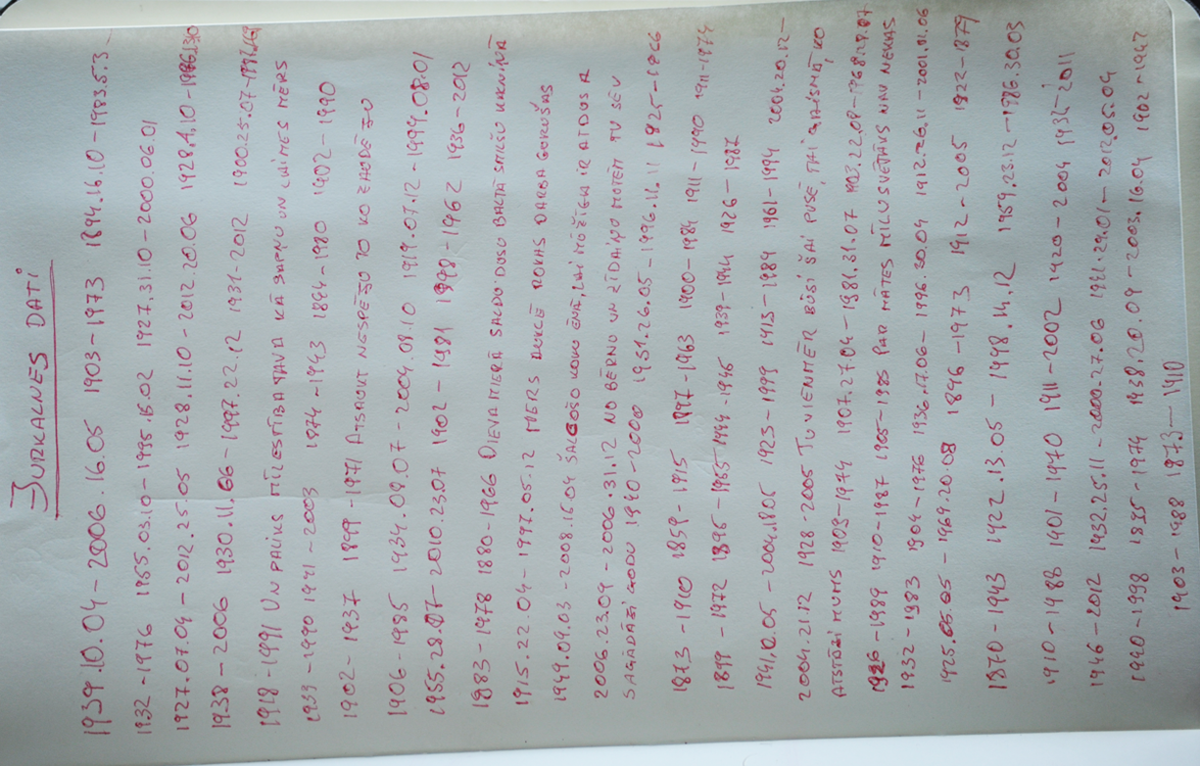 JURKALNES DATI
1939.10.04 - 2006.16.05 1903 - 1973 1894.16.10 - 1983.5.3.
1932 - 1976 1955.03.10 - 1995.16.02 1927.31.10 - 2000.06.01
1927.07.04 - 2012.25.05 1928.11.10 - 2012.20.06 1928.1.10
1938 - 2006 1930.11.06 - 1997.22.12 1931 - 2012 1900.25.07
1918 - 1991 UN PALIKS MĪLESTĪBA TAVA KĀ SAPŅU UN LAIMES MĒRS
1933 - 1990 1941 - 2003 1974 - 1943 1894 - 1980 1902 - 1990
1902 - 1937 1899 - 1971 ATSAOUT NESPĒŠO TO KO ZAUDĒJO
1906 - 1985 1934.09.07 - 2004.09.10 1919.07.12 - 1999.08.01
1955.28.07 - 2010.23.07 1902 - 1981 1898 - 1962 1936 - 2012
1983 - 1978 1880 - 1966 DIEVAMIERĀ SALDO DUSU BALTĀ SMILŠU KALNIŅĀ
1915.22.04 - 1997.05.12 MŪŽS ROKAS DARBA GURUŠAS
1949.04.03 - 2008.16.04 ŠALCOŠO KOKU ĒNĀ, LAI MŪŽĪGA IR ATDUSA
2006.23.09 - 2006.31.12 NO BĒRNU UN ZĪDAIŅU MUTĒM TU SEV
SAGĀDĀJI GODU 1940 - 2000 1951.26.05 - 1996.11.11 1825 - 1866
1873 - 1910 1859 - 1915 1897 - 1963 1900 - 1984 1911 - 1990 1911 - 1974
1899 - 1972 1895 - 1965 1944 - 1945 1939 - 1944 1926 - 1987
1941.10.05 - 2004.19.05 1923 - 1999 1915 - 1984 1961 - 1994 2004.20.12 -
2004.21.12 1928 - 2005 TU VIENMĒR BŪSI ŠAI PUSĒ, TAI GAISMĀ, KO
ATSTĀJI MUMS 1909 - 1974 1907.27.04 - 1981.31.07 1903.22.08 - 1968.29.07
1926 - 1989 1910 - 1987 1905 - 1985 PAR MĀTES MĪĻU SVĒTĀKS NAV NEKAS
1932 - 1983 1904 - 1976 1936.17.06 - 1996.30.04 1912.26.11 - 2001.01.06
1925.05.05 - 1969.20.08 1896 - 1973 1912 - 2005 1922 - 1879
1870 - 1943 1922.13.05 - 1998.14.12 1959.23.12 - 1986.30.03
1910 - 1988 1901 - 1970 1911 - 2002 1920 - 2004 1934 - 2011
1946 - 2012 1932.25.11 - 2000.27.06 1921.29.01 - 2012.05.04
1940 - 1998 1935 - 1974 1938.20.09 - 2003.16.04 1902 - 1947
1903 - 1988 1873 - 1910